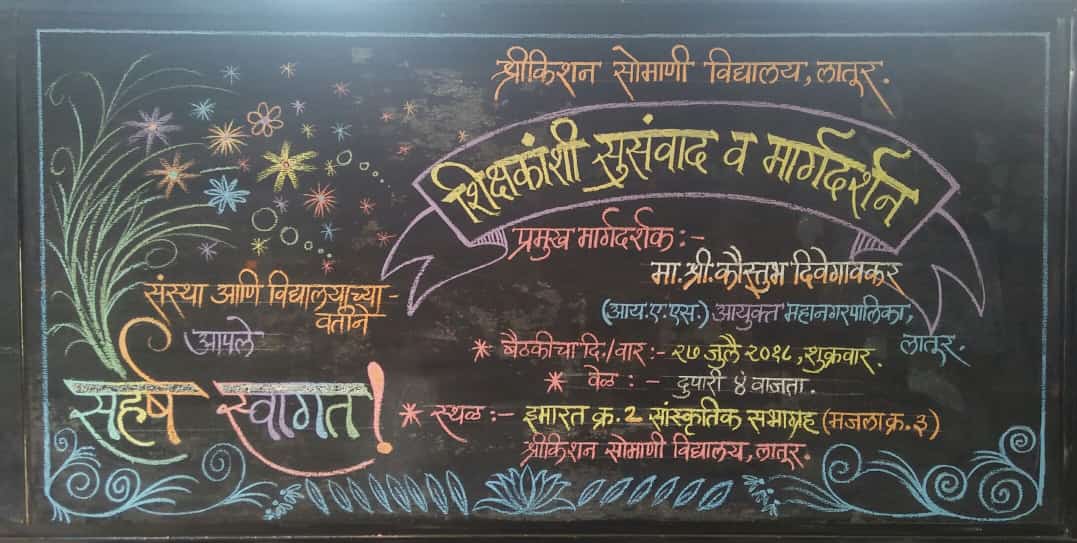 श्रीकिशन सोमाणी विद्यालय, लातूर.
शिक्षकांशी सुसंवाद व मार्गदर्शन
प्रमुख मार्गदर्शक :-
मा. श्री. कौस्तुभ दिवेगावकर
(आय.ए.एस.) आयुक्त महानगरपालिका,
लातूर.
संस्था आणि विद्यालयाच्या -
वतीने
आपले
सहर्ष स्वागत!
* बैठकीचा दि./वार :- २७ जुलै २०१८, शुक्रवार.
* वेळ : - दुपारी ४ वाजता.
* स्थळ :- इमारत क्र. 2 सांस्कृतिक सभागृह (मजला क्र. ३)
श्रीकिशन सोमाणी विद्यालय, लातूर.